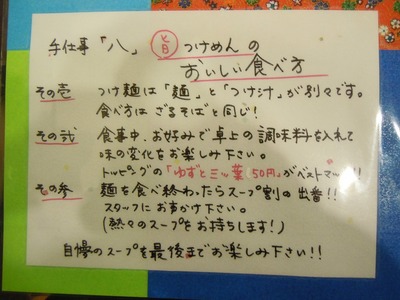 手仕事「八」 旨 つけめんの
おいしい食べ方
その壱 つけ麺は「麺」と「つけ汁」が別々です。
食べ方は ざるそばと同じ！
その弐 食事中、お好みで卓上の調味料を入れて
味の変化をお楽しみ下さい。
トッピングの「ゆずと三ッ葉50円」がベストマッチ!!
その参 麺を食べ終わったらスープ割の出番!!
スタッフにお声かけ下さい。
(熱々のスープをお持ちします！)
自慢のスープを最後までお楽しみ下さい!!